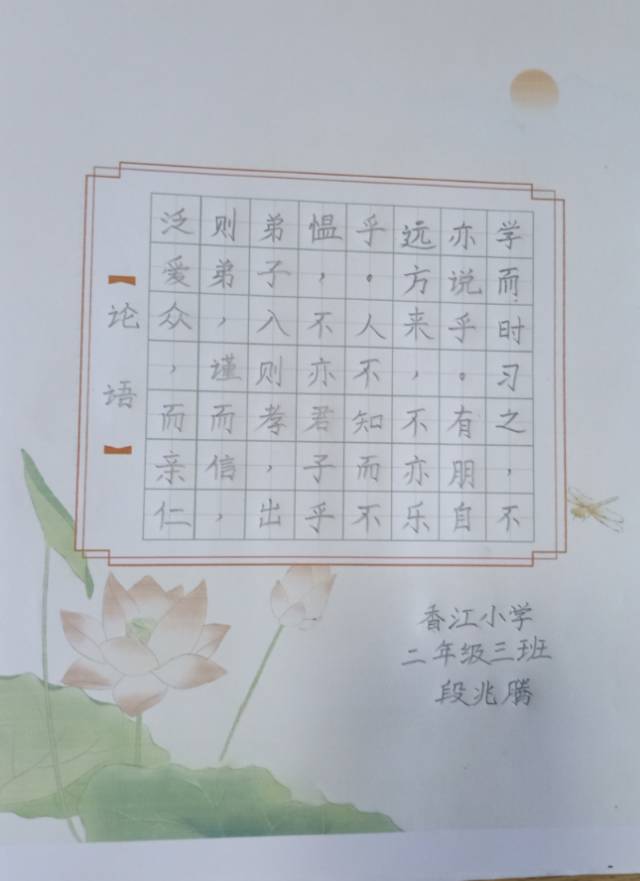 学而时习之，不
亦说乎。有朋自
远方来，不亦乐
乎。人不知而不
愠，不亦君子乎
弟子，入则孝，出
则弟，谨而信，
泛爱众，而亲仁
【论语】
香江小学
二年级三班
段兆腾